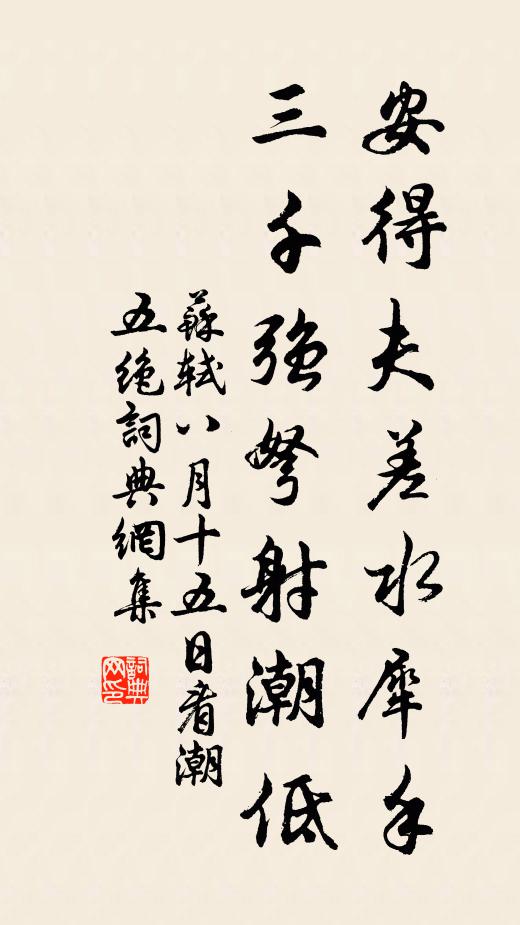 安得夫差水犀手
三千強弩射潮低
蘇軾八月十五日看潮
五絕詞典網集
詞典
网印